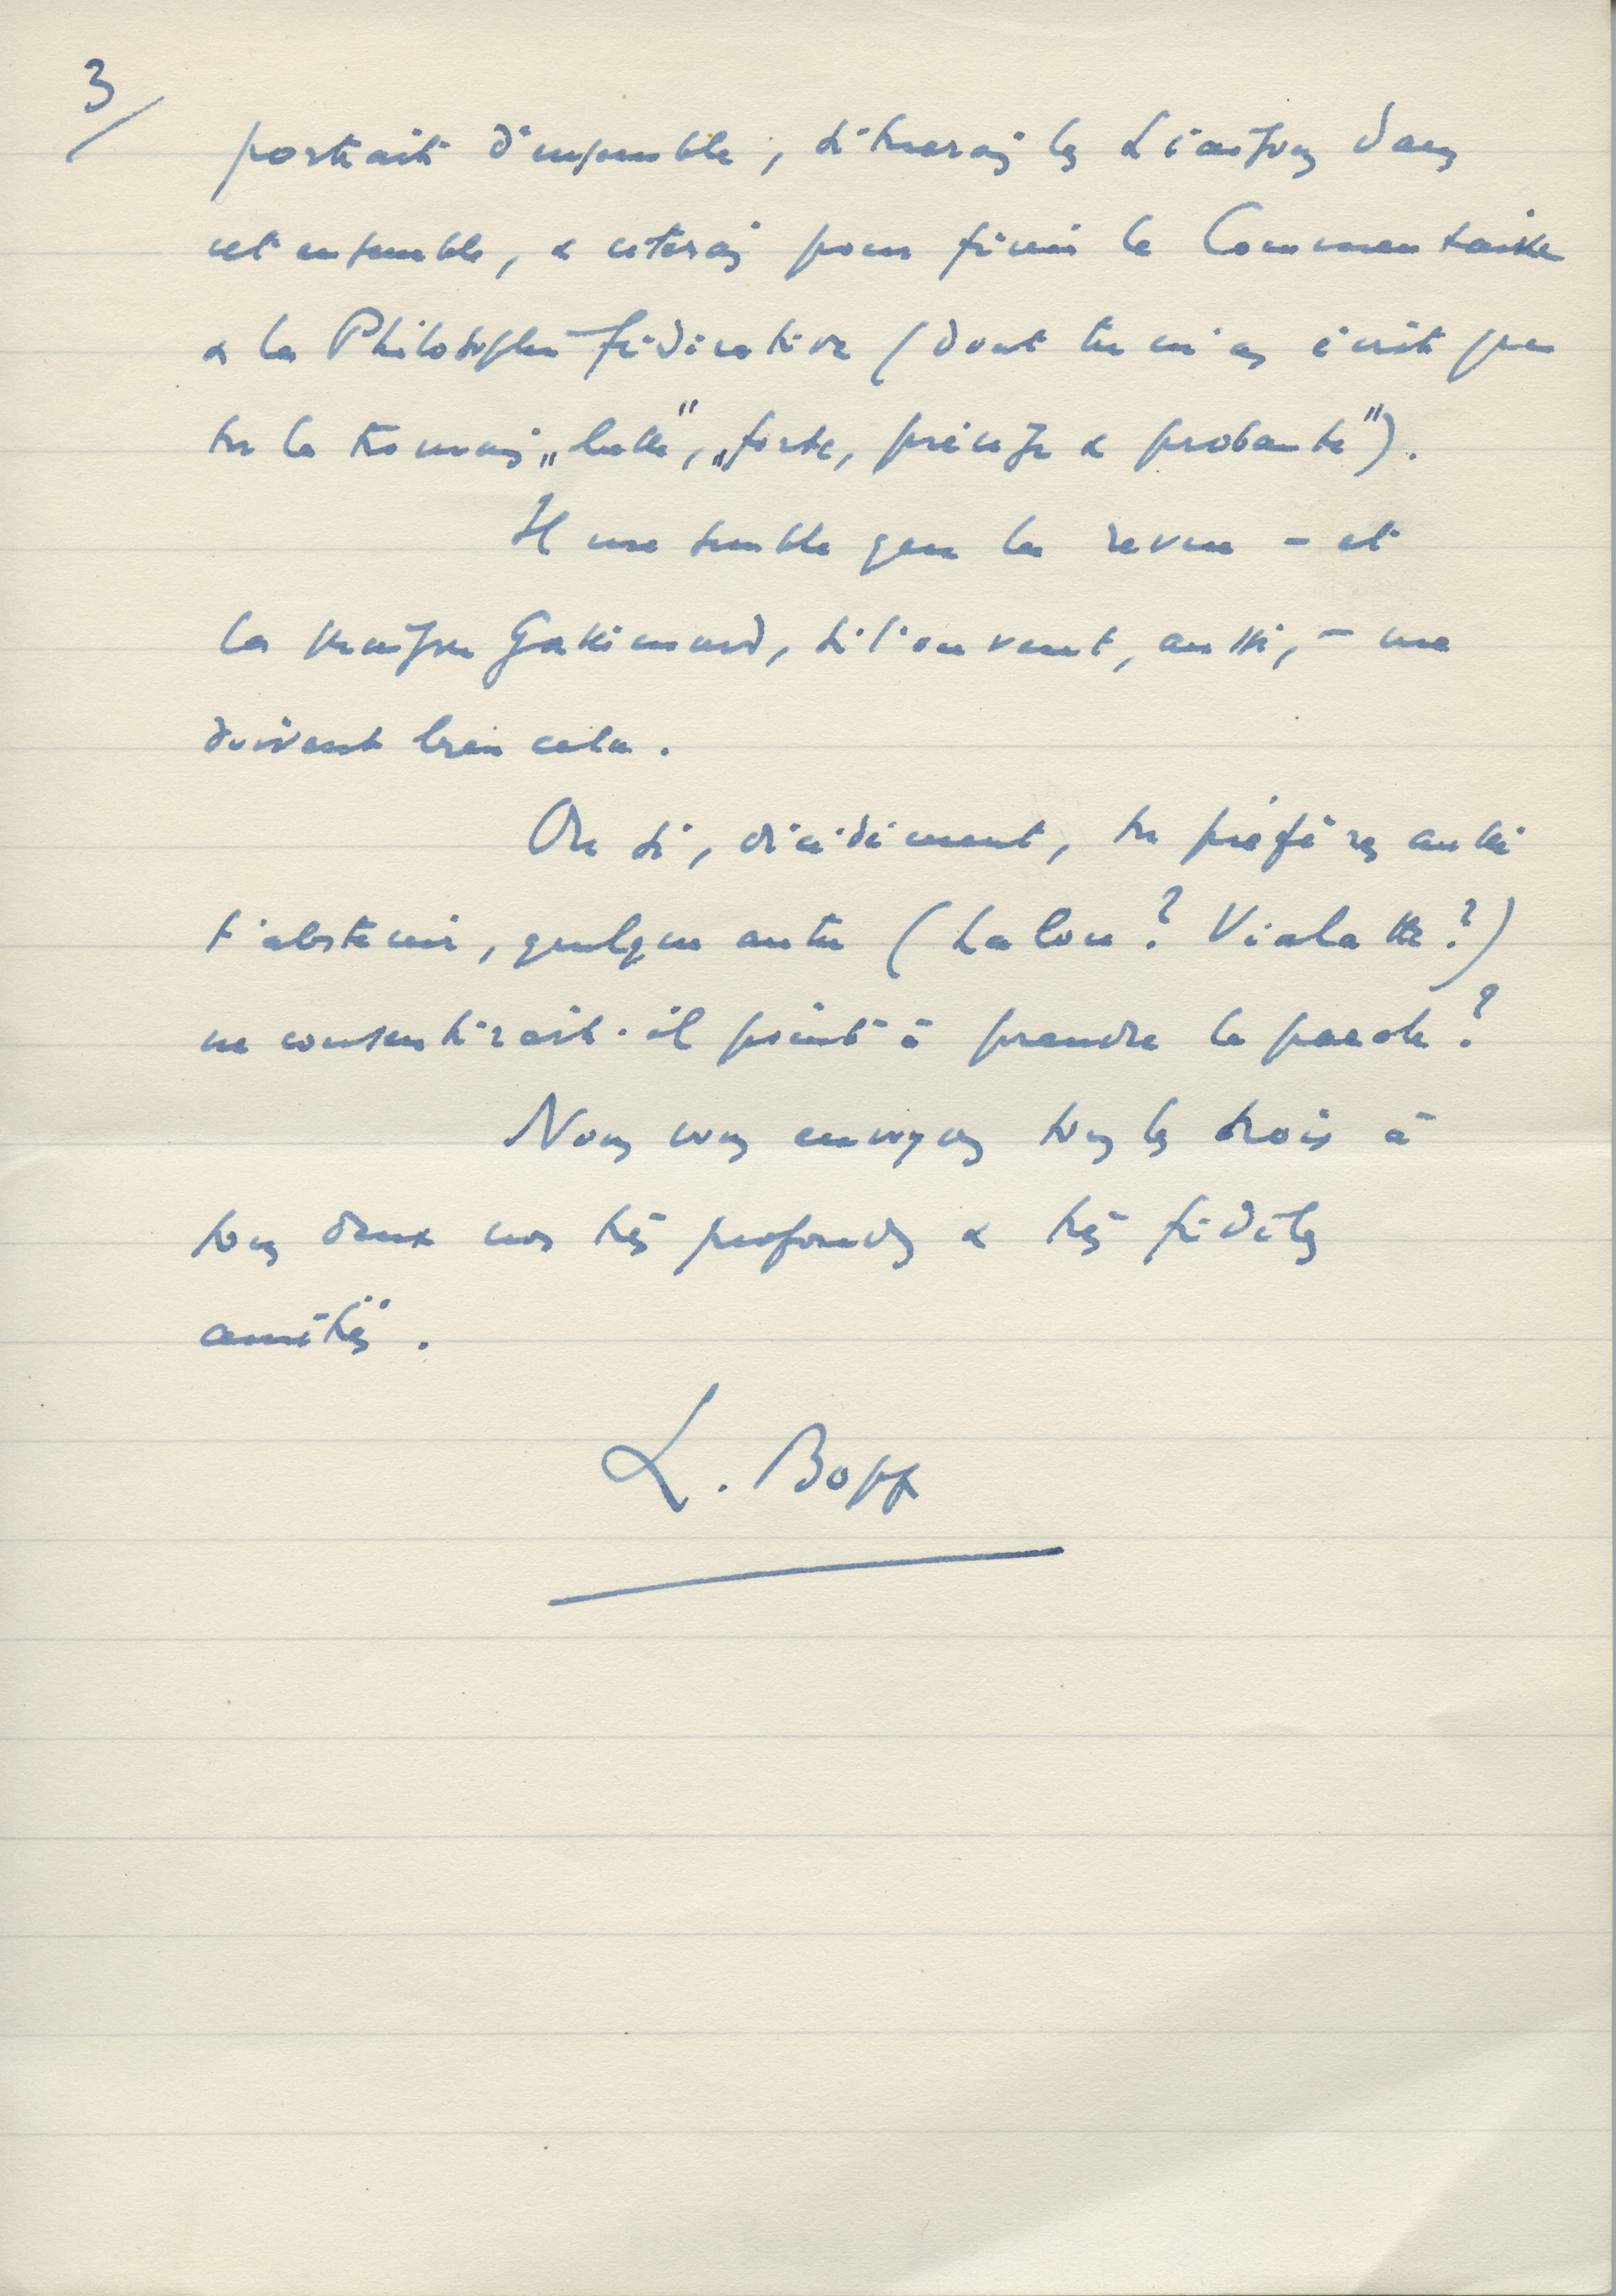 3/
portrait d'ensemble, situerais les Liaisons dans
cet ensemble, & citerais pour finir le Commentaire
& la Philosophie fédérative (dont tu m'as écrit que
tu la trouvais „belle", „forte, précise & probante").
Il me semble que la revue – et
la maison Gallimard, si l'on veut, aussi, – me
doivent bien cela.
Ou si, décidément, tu préfères aussi
t'abstenir, quelque autre (Lalou ? Vialatte ?)
ne consentirait-il point à prendre la parole ?
Nous vous envoyons tous les trois à
tous deux nos très profondes & très fidèles
amitiés.
L. Bopp